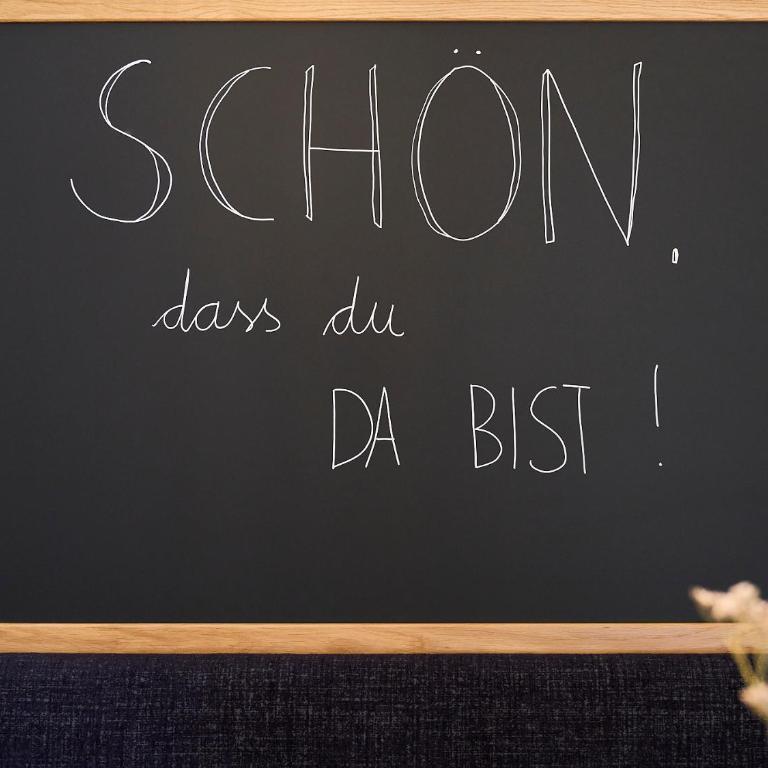 SCHÖN.
dass du
DA BIST !